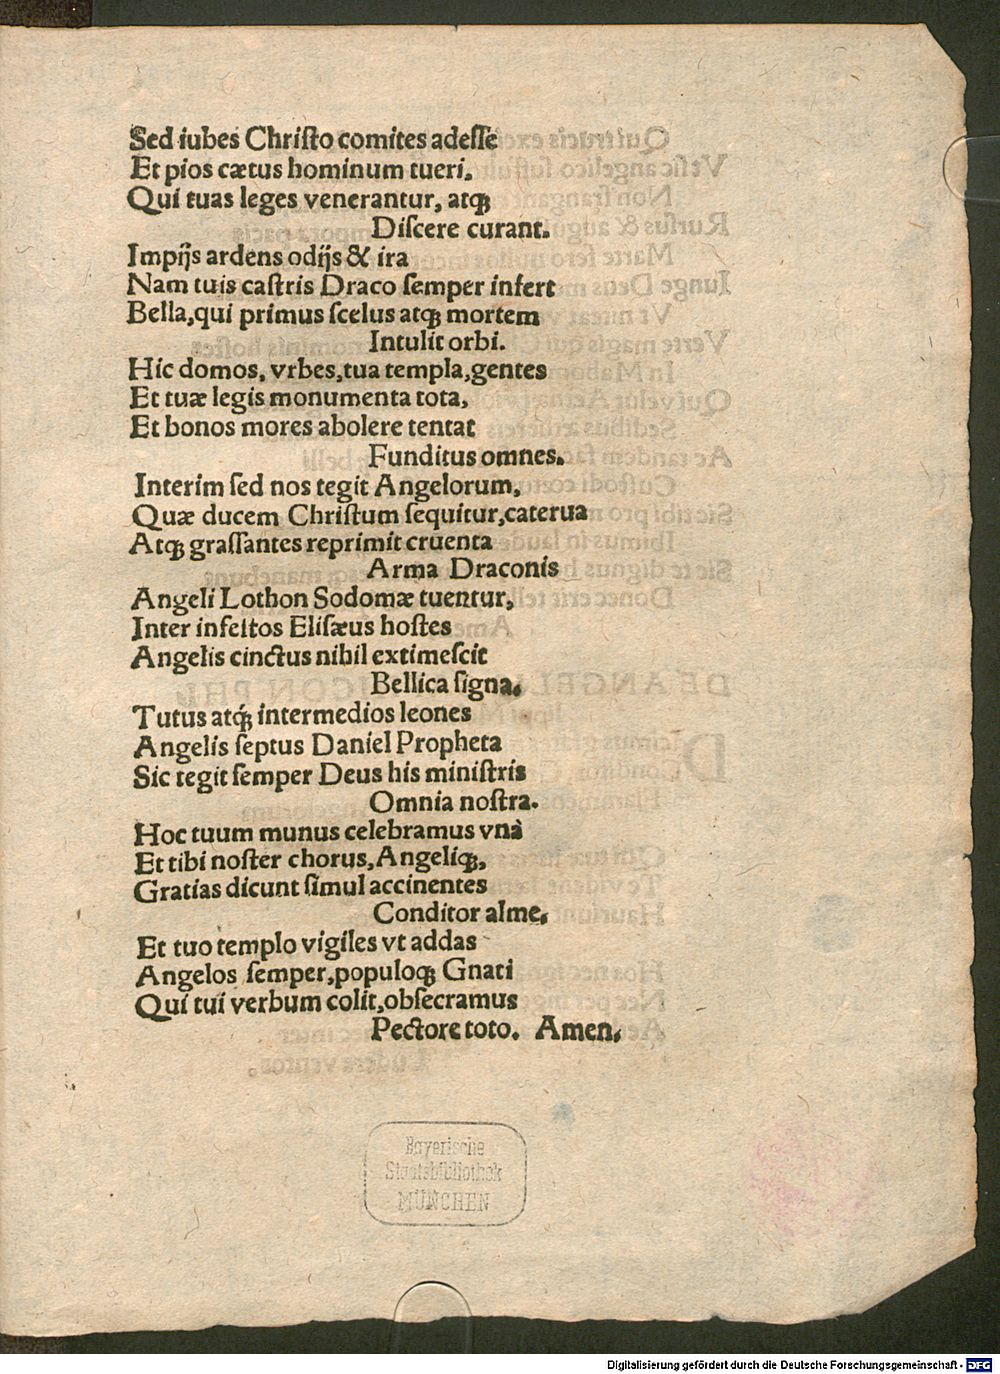 Sed iubes Christo comites adesse
Et pios cætus hominum tueri.
Qui tuas leges venerantur, atqꝫ
Discere curant.
Impijs ardens odijs & ira
Nam tuis castris Draco semper infert
Bella,qui primus scelus atqꝫ mortem
Intulit orbi.
Hic domos, vrbes,tua templa,gentes
Et tuæ legis monumenta tota,
Et bonos mores abolere tentat
Funditus omnes.
Interim sed nos tegit Angelorum,
Quæ ducem Christum sequitur,caterua
Atqꝫ grassantes reprimit cruenta
Arma Draconis
Angeli Lothon Sodomæ tuentur,
Inter infeltos Elisæus hostes
Angelis cinctus nihil extimescit
Bellica signa.
Tutus atqꝫ́ intermedios leones
Angelis septus Daniel Propheta
Sic tegit semper Deus his ministris
Omnia nostra.
Hoc tuum munus celebramus vnà
Et tibi noster chorus,Angeliqꝫ,
Gratias dicunt simul accinentes
Conditor alme,
Et tuo templo vigiles vt addas
Angelos semper,populoqꝫ Gnati
Qui tui verbum colit,obsecramus
Pectore toto. Amen.
Bayerische
Staatsbibliothek
MÜNCHEN
Digitalisierung gefördert durch die Deutsche Forschungsgemeinschaft - DFG